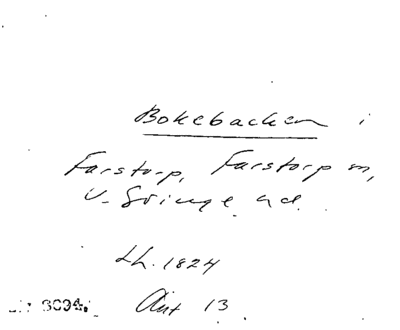 Bokebacken i
Farstorp, Farstorp sn,
V. Göinge hd.
Lh. 1824
Akt 13